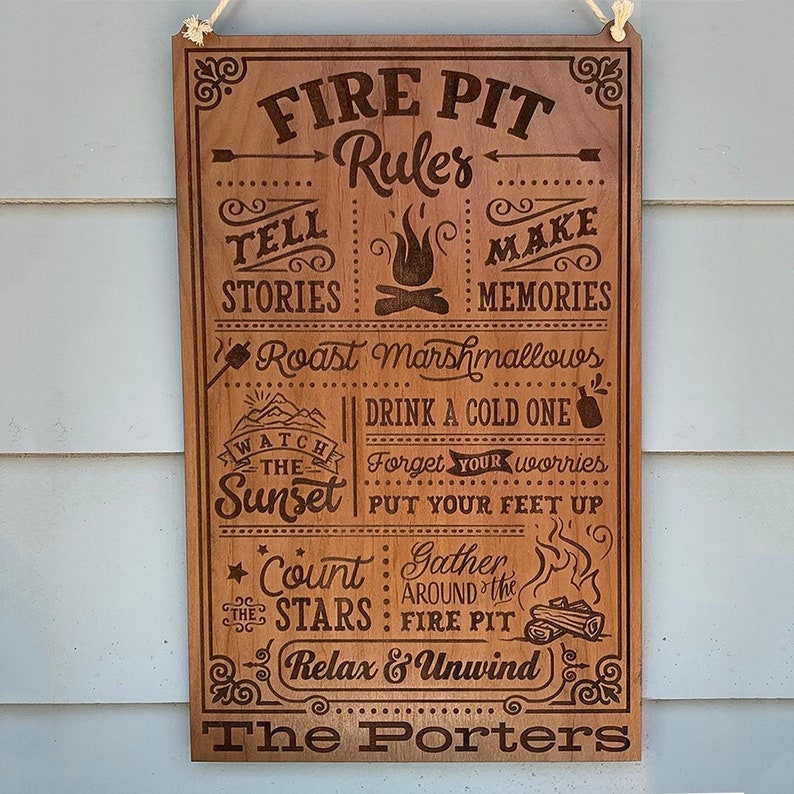 FIRE PIT
Rules
TELL
STORIES
MAKE
MEMORIES
Roast Marshmallows
WATCH
THE
Sunset
DRINK A COLD ONE
Forget YOUR worries
PUT YOUR FEET UP
Count
THE STARS
Gather
AROUND the
FIRE PIT
Relax & Unwind
The Porters